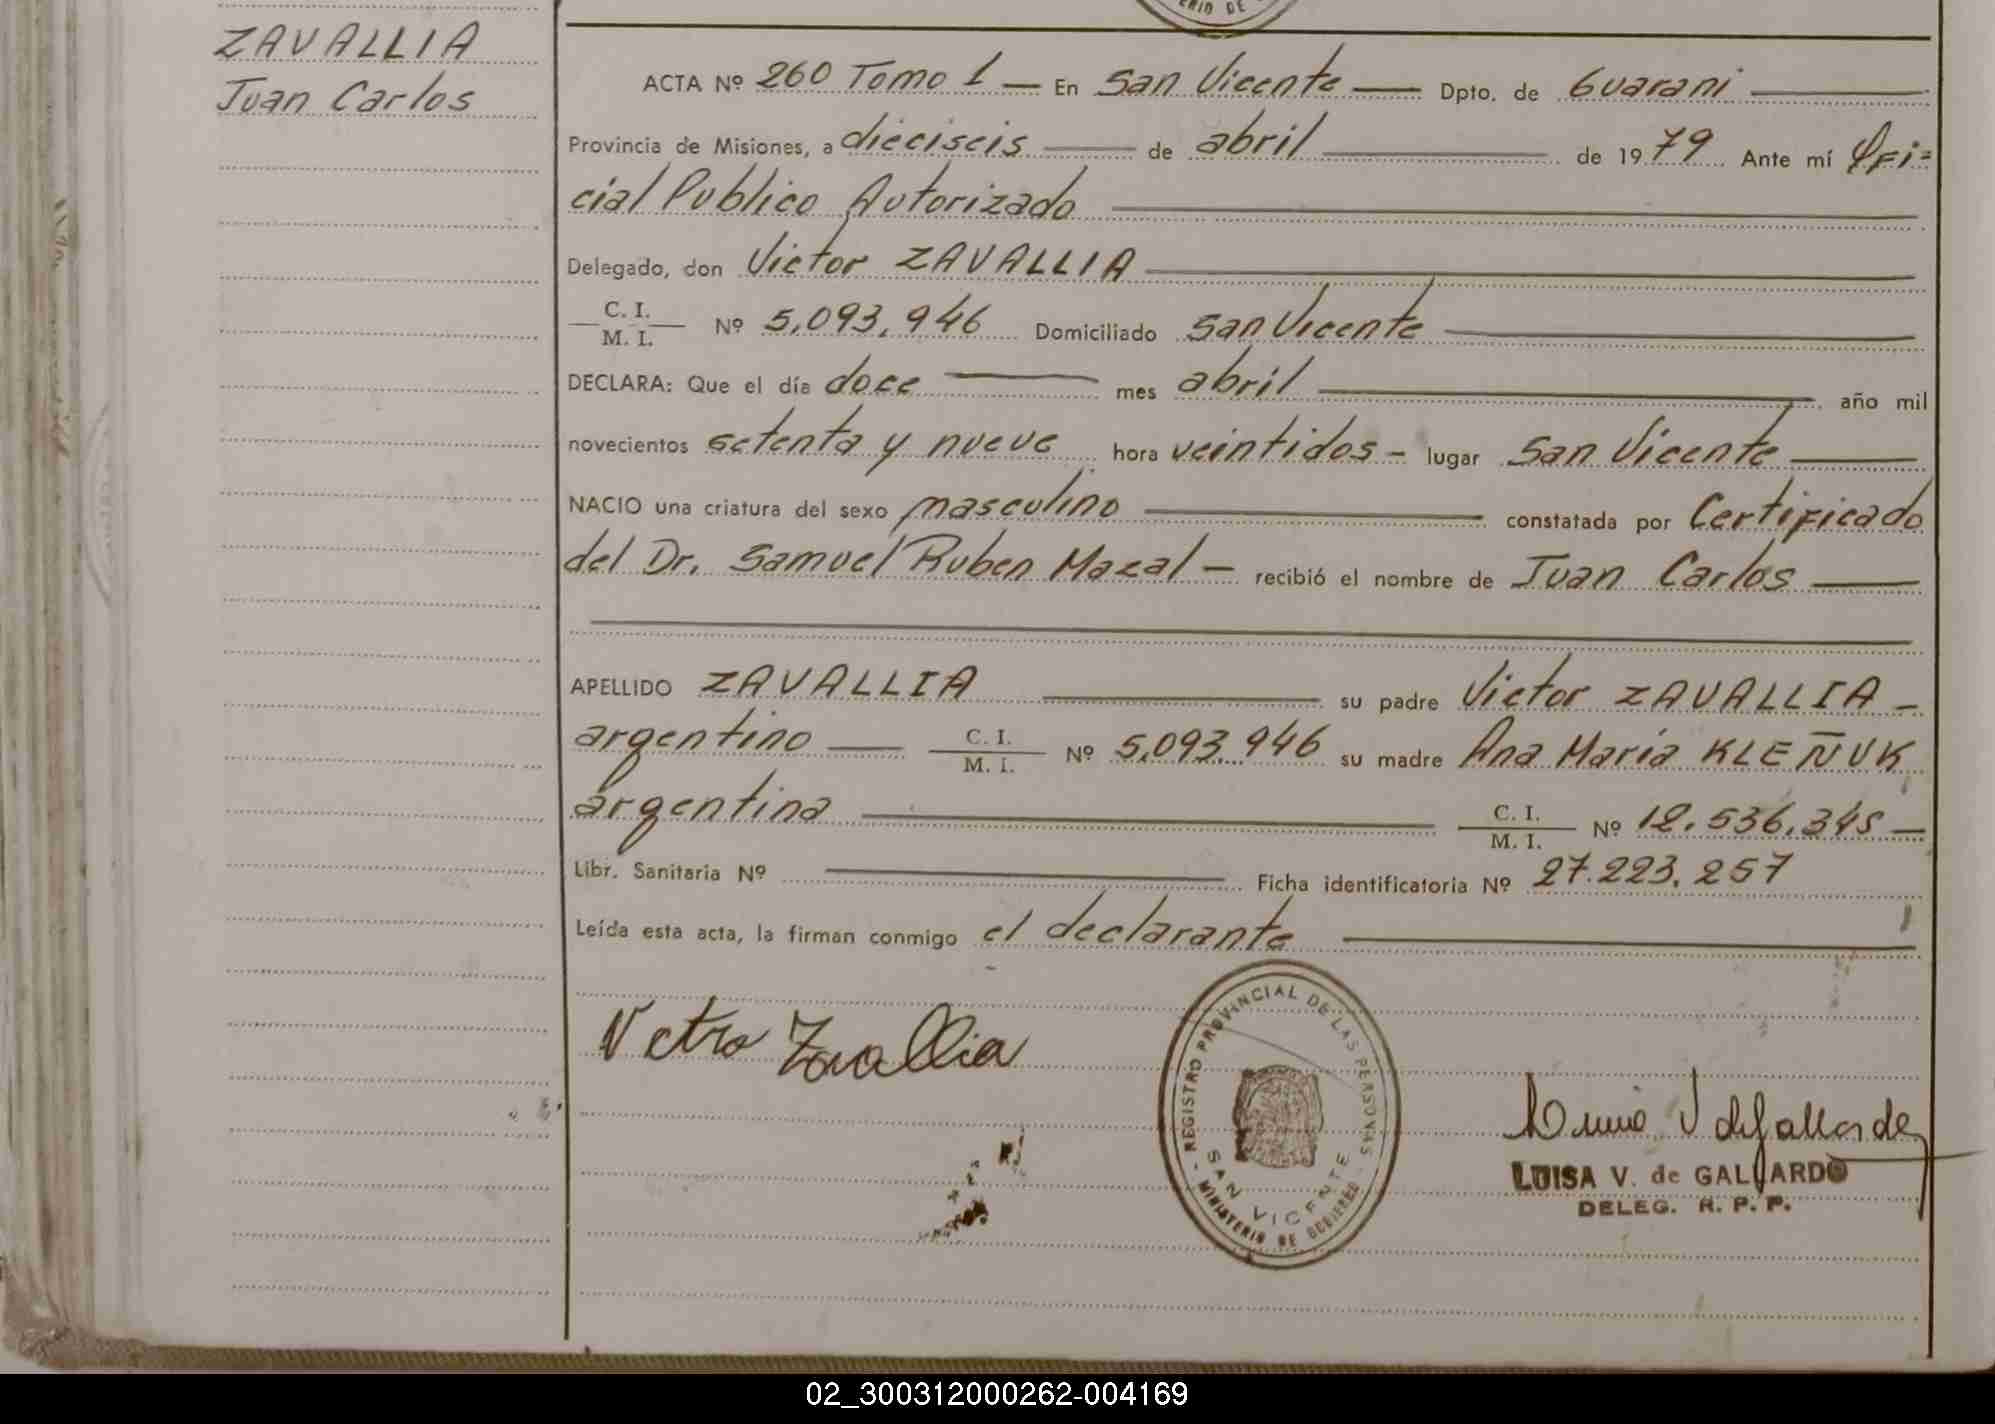 ERIO DE
ZAVALLIA
Juan Carlos
ACTA Nº 260 Tomo 1 — En San Vicente — Dpto. de Guarani
Provincia de Misiones, a dieciseis — de abril — de 1979 Ante mí Ofi=
cial Publico Autorizado
Delegado, don Victor ZAVALLIA
C. I.
M. I. Nº 5.093.946 Domiciliado San Vicente
DECLARA: Que el día doce — mes abril — año mil
novecientos setenta y nueve hora veintidos - lugar San Vicente
NACIO una criatura del sexo masculino — constatada por Certificado
del Dr. Samuel Ruben Mazal — recibió el nombre de Juan Carlos
APELLIDO ZAVALLIA — su padre Victor ZAVALLIA -
argentino — C. I. M. I. Nº 5.093.946 su madre Ana María KLEÑUK
argentina — C. I. M. I. Nº 12.536.345 —
Libr. Sanitaria Nº — Ficha identificatoria Nº 27.223.257
Leída esta acta, la firman conmigo el declarante
Vctro Zavallia
REGISTRO PROVINCIAL DE LAS PERSONAS
SAN VICENTE
MINISTERIO DE GOBIERNO
LUISA V. de GALLARDO
DELEG. R. P. P.
02_300312000262-004169